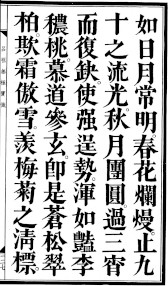 如日月常明春花爛熳止九
十之流光秋月團圓過三宵
而復缺使强逞勢渾如豔李
穠桃慕道參玄卽是蒼松翠
柏欺霜傲雪羨梅菊之淸標